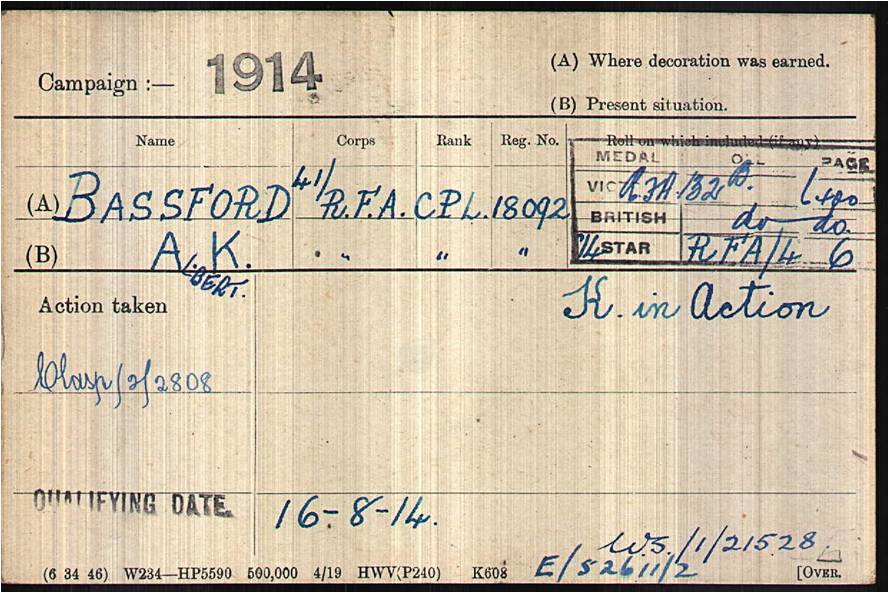 Campaign :— 1914
(A) Where decoration was earned.
(B) Present situation.
Name Corps Rank Reg. No. Roll on which included (if any)
MEDAL ROLL PAGE
(A) BASSFORD 41/R.F.A. CPL. 18092
VICTORY R.F.A./132 B.
BRITISH do do.
(B) A. K. " " "
ALBERT.
'14 STAR R.F.A/4 6
Action taken
K. in Action
Clasp/2/2808
QUALIFYING DATE. 16-8-14.
W.S./1/21528
E/52611/2
(6 34 46) W234—HP5590 500,000 4/19 HWV(P240) K608 [OVER.